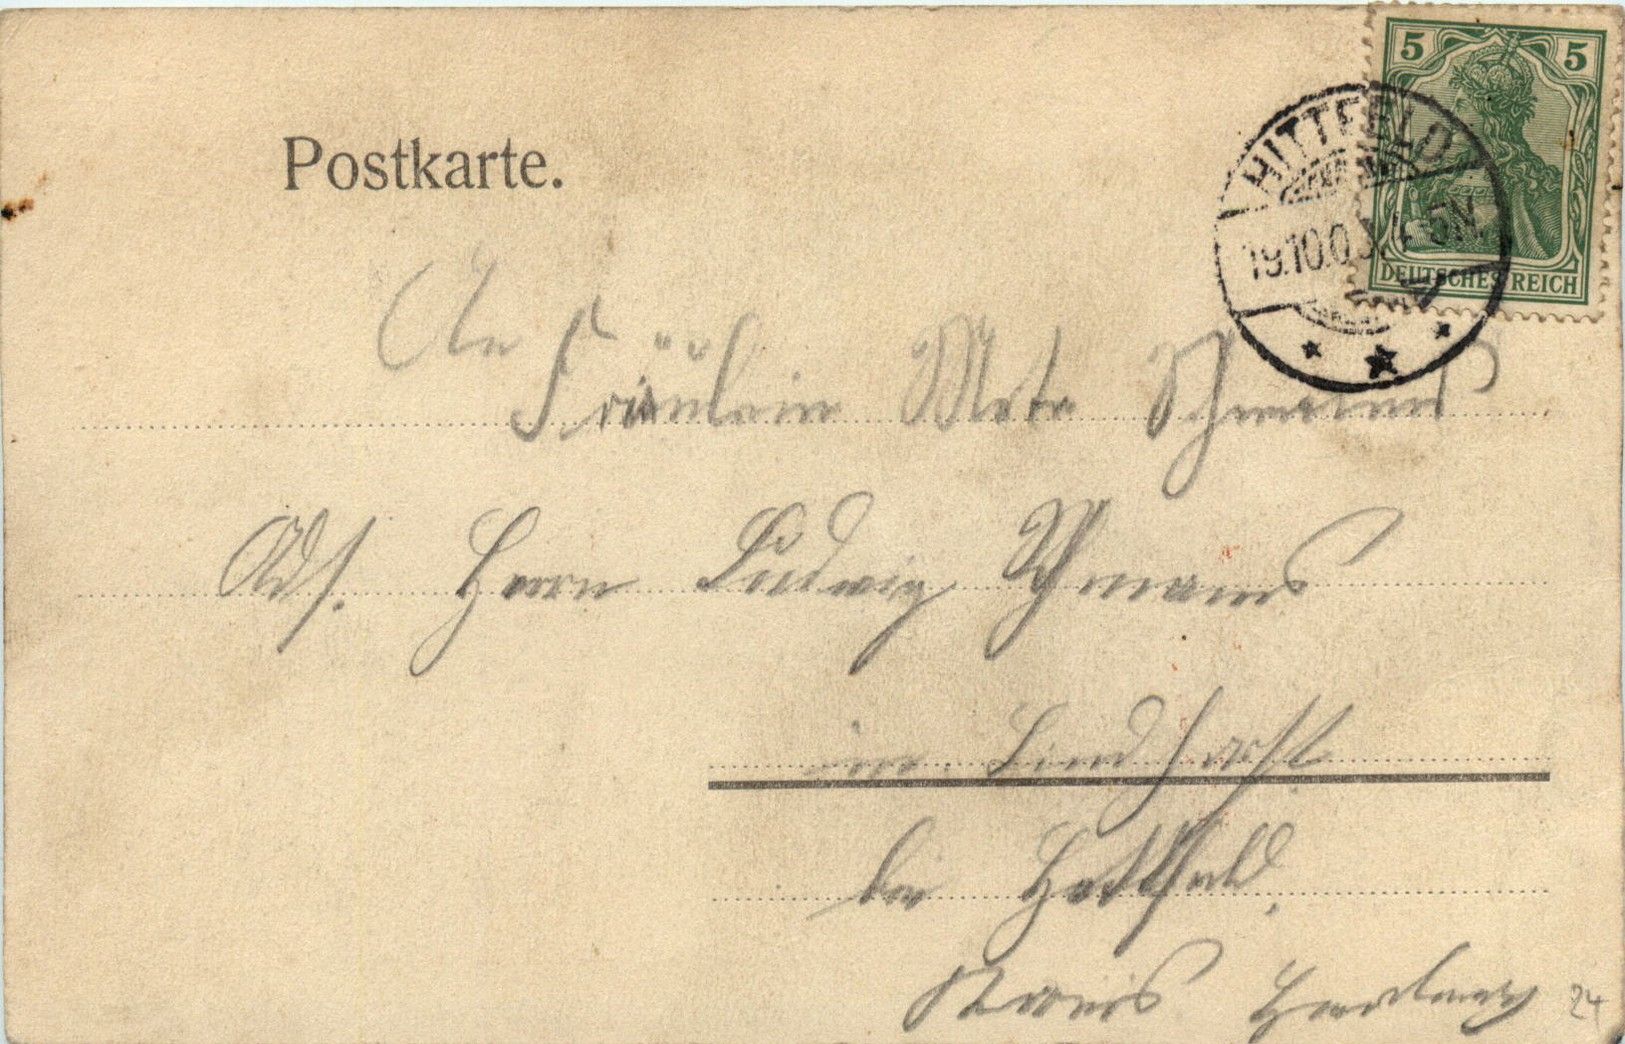 5 5
DEUTSCHES REICH
HITTFELD
19.10.0 5N.
Postkarte.
An
Fräulein Meta
Adr. Herrn Ludwig
in Lindhorst
bei Hittfeld.
Kreis Harburg
24